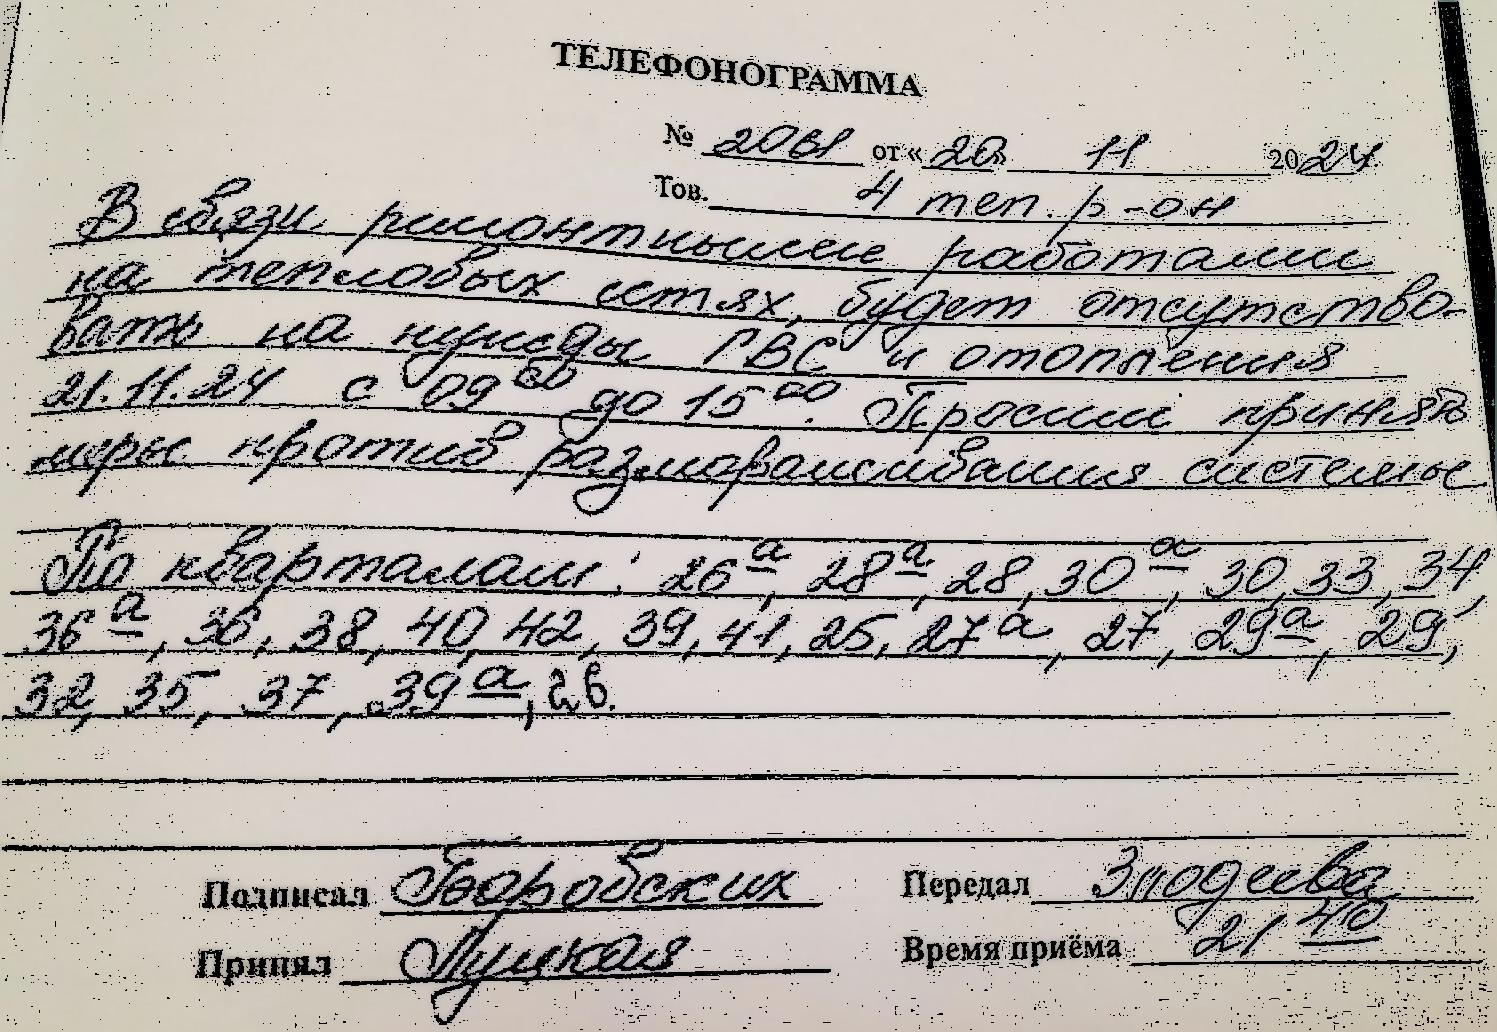 ТЕЛЕФОНОГРАММА
№ 2061 от «20» 11 2024
Тов. 4 теп. р-он
В связи ремонтными работами
на тепловых сетях, будет отсутство-
вать на нужды ГВС и отопления
21.11.24 с 09⁰⁰ до 15⁰⁰. Просим принять
меры против размораживания системы
По кварталам: 26ᵃ, 28ᵃ, 28, 30ᵃ, 30, 33, 34,
36ᵃ, 36, 38, 40, 42, 39, 41, 25, 27ᵃ, 27, 29ᵃ, 29,
32, 35, 37, 39ᵃ,
Подписал Боровских Передал Злодеева
Принял Луцкая Время приёма 21⁴⁰